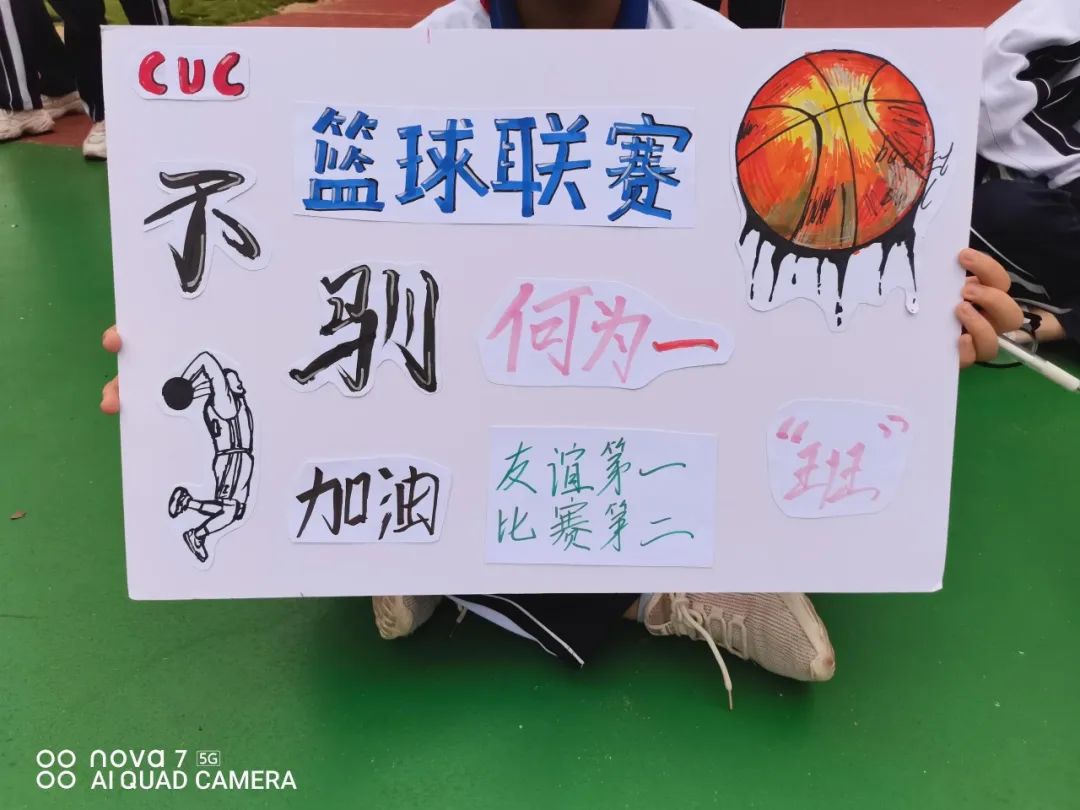 CUC
篮球联赛
不
驯
何为一
"班"
加油
友谊第一
比赛第二
nova 7 5G
AI QUAD CAMERA